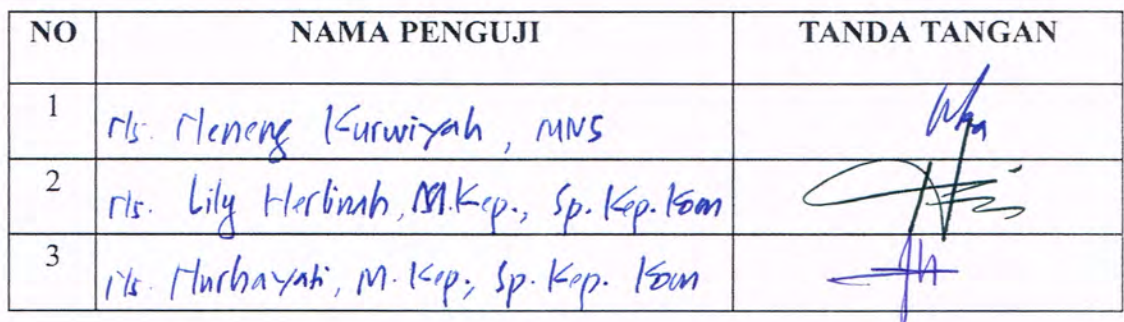 NO NAMA PENGUJI TANDA TANGAN
1 Ns. Neneng Kurwiyah, MNS
2 Ns. Lily Herlinah, M.Kep., Sp.Kep.Kom
3 Ns. Nurhayati, M.Kep., Sp.Kep.Kom